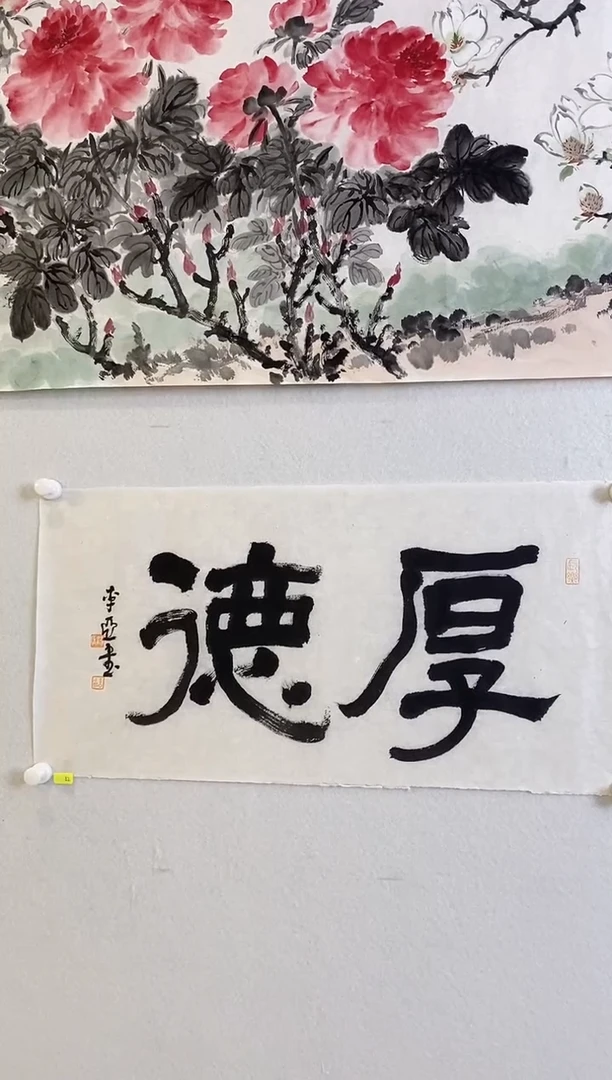 厚德
李亞書